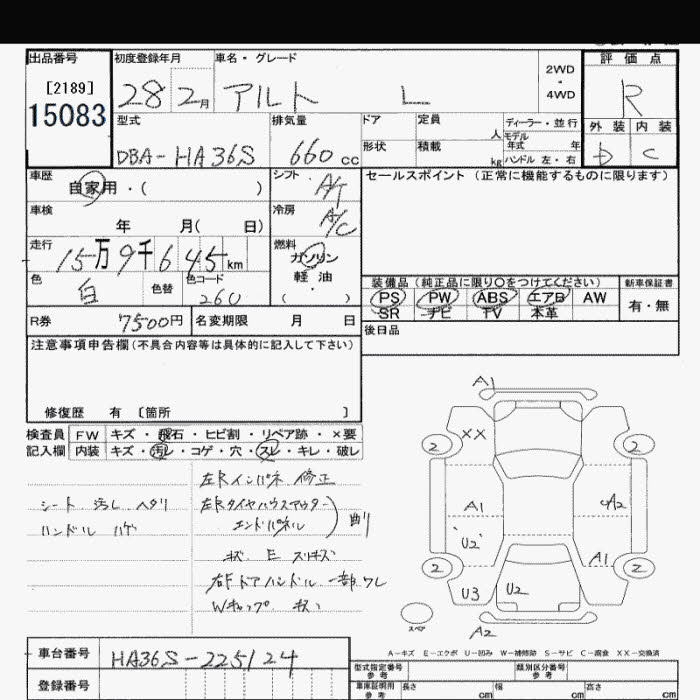 出品番号 初度登録年月 車名・グレード 評価点
[2189] 28 2月 アルト L 2WD ・ 4WD R
15083
型式 排気量 ドア 定員 人 ディーラー・並行 外装 内装
モデル年式 年
DBA-HA36S 660cc 形状 積載 kg ハンドル 左・右 D C
車歴 自家用・( ) シフト A/T セールスポイント(正常に機能するものに限ります)
車検 年 月( 日) 冷房 A/C
走行 15万9千645km 燃料 ガソリン
軽油
( ・ )
色 白 色替 色コード 260
装備品(純正品に限り○をつけてください) 新車保証書
PS PW ABS エアB AW 有・無
SR ナビ TV 本革
R券 7500円 名変期限 月 日 後日品
注意事項申告欄(不具合内容等は具体的に記入して下さい)
修復歴 有 〔箇所 〕
検査員 FW キズ・飛石・ヒビ割・リペア跡・×要
記入欄 内装 キズ・汚レ・コゲ・穴・スレ・キレ・破レ
シート 汚レ ヘタリ
ハンドル ハゲ
左Rインパネ 修正
左Rタイヤハウスアウター
エンドパネル 曲り
右Fドアハンドル 一部ワレ
A1
XX
2 2
A1 A2
U2 A1
2 2
U3 U2
スペア
A2
A-キズ E-エクボ U-凹み W-補修跡 S-サビ C-腐食 XX-交換済
車台番号 HA36S-225124
登録番号
型式指定番号 参考 類別区分番号 参考
車庫証明用 参考 長さ cm 幅 cm 高さ cm